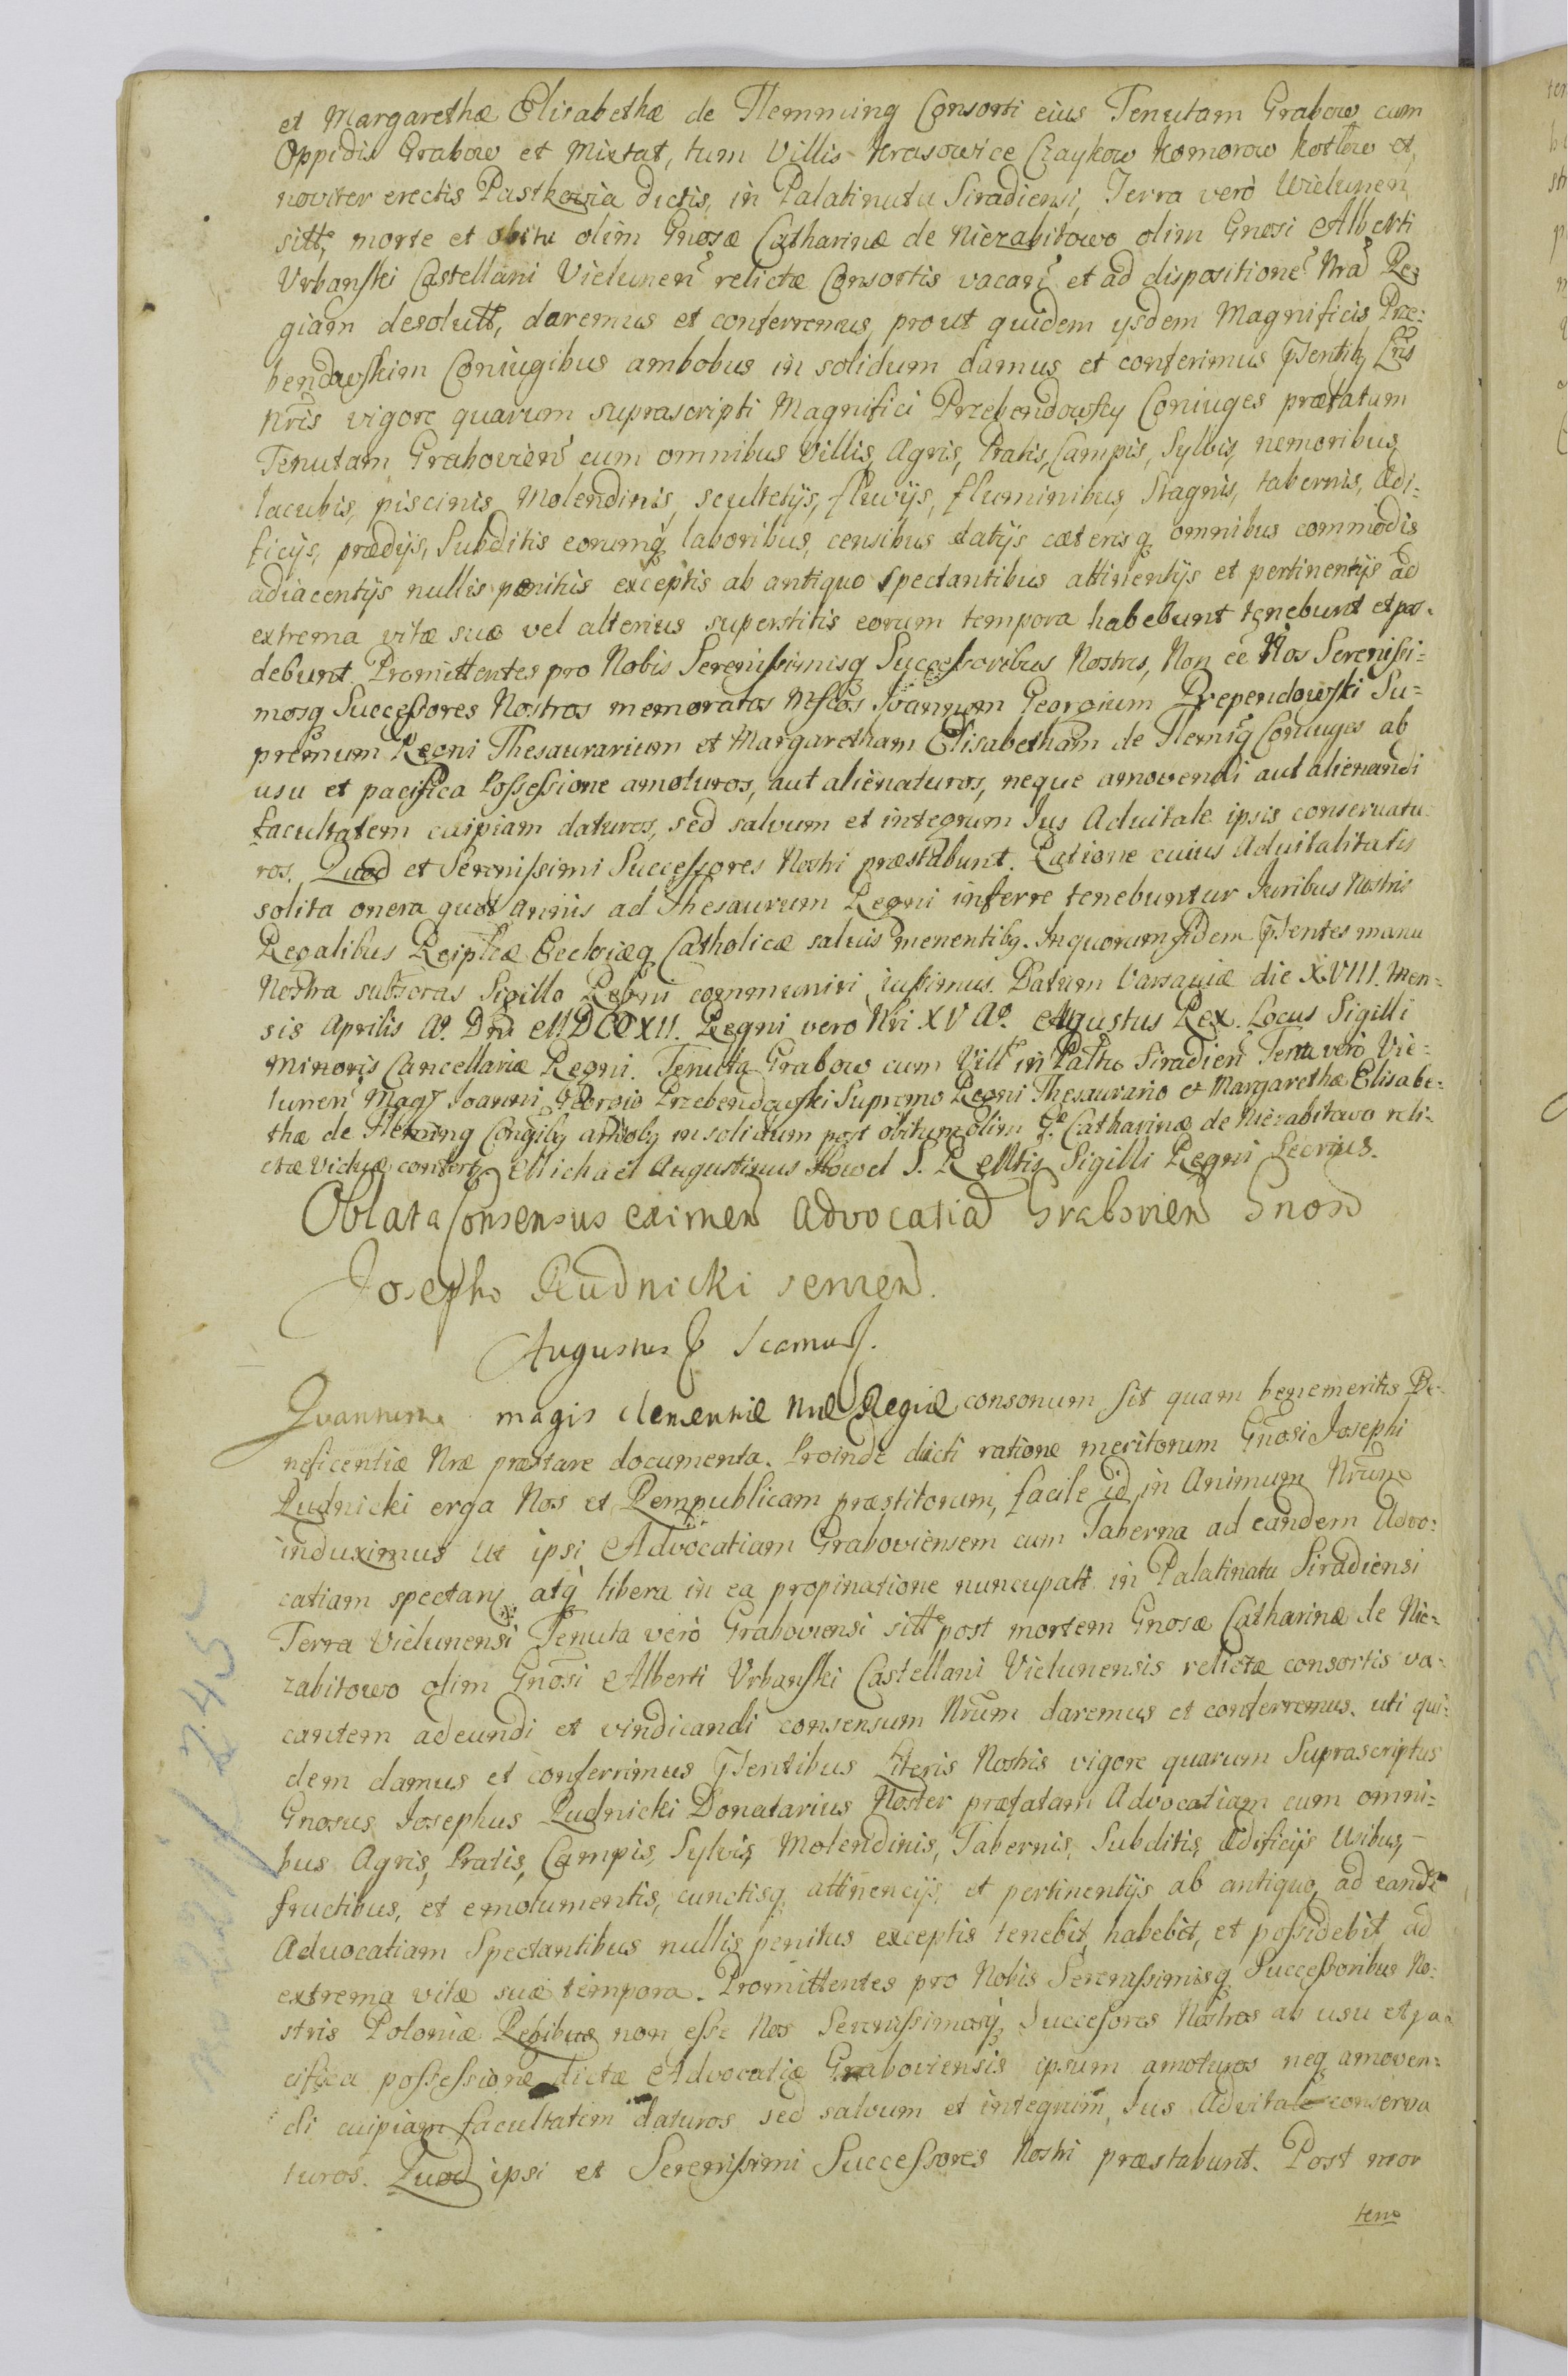 et Margarethæ Elisabethæ de Flemming Consorti eius Tenutam Grabow cum
Oppidis Grabow et Mixtat, tum Villis Krasowice Czaykow Komorow Kotlow et
noviter erectis Pustkowia dictis, in Palatinatu Siradiensi, Terra verò Wielunen
sitt, morte et obitu olim Gnosæ Catharinæ de Niezabitowo olim Gnosi Alberti
Vrbanski Castellani Vielunen relictæ Consortis vacan et ad dispositione Nra Re
giam devolutt, daremus et conferremus, prout quidem ijsdem Magnificis Prze-
bendowskim Coniugibus ambobus in solidum damus et conferimus Pstentibq Lris
Nris vigore quarum suprascripti Magnifici Przebendowscy Coniuges præfatam
Tenutam Grabovien cum omnibus Villis, Agris, Pratis, Campis, Sylvis, nemoribus,
lacubis, piscinis Molendinis, scultetijs, fluvijs, fluminibus, Stagnis, tabernis, Ædi-
ficijs, prædijs, Subditis eorumq laboribus, censibus datijs cæterisq omnibus commodis
adiacentijs nullis penitus exceptis ab antiquo spectantibus attinentijs et pertinentijs ad
extrema vitæ suæ vel alterius superstitis eorum tempora habebunt tenebunt et pos-
debunt. Promittentes pro Nobis Serenissimisq Successoribus Nostris, Non ee Nos Serenissi-
mosq Successores Nostros memoratos Mfcos Joannem Georgium Przependowski Su-
premum Regni Thesaurarium et Margaretham Elisabetham de Flemig Coniuges ab
usu et pacifica Possessione amoturos, aut alienaturos, neque amovendi aut alienandi
facultatem cuipiam daturos, sed salvum et integrum Jus Advitale ipsis conservatu
ros. Quod et Serenissimi Successores Nostri præstabunt. Ratione cuius Advitalitatis
solita onera quot annis ad Thesaurum Regni inferre tenebuntur Juribus Nostris
Regalibus Reiplcæ Ecclesiæq Catholicæ salvis menentibq. In quorum fidem Pstentes manu
Nostra subscras Sigillo Regni communiri iussimus. Datum Varsaviæ die XVIII. Men-
sis Aprilis Ao. Dni MDCCXII. Regni vero Nri XV Ao. Augustus Rex. Locus Sigilli
Minoris Cancellariæ Regni. Tenuta Grabow cum Vill in Pathu Siradien Terra verò Vie-
lunen Magf Joanni Georgio Przebendowski Supremo Regni Thesaurario et Margarethæ Elisabe-
thæ de Fleming Congibq ambobq in solidum post obitum olim G. Catharinæ de Niezabitowo reli-
ctæ viduæ confert. Michael Augustinus Howel S. R. Mtis Sigilli Regni Secrius.
Oblata Consensus eximen Advocatiã Grabovien Gnoso
Josepho Rudnicki servien.
Augustus 2 Scamus.
Quantum magis clementiæ Nræ Regiæ consonum sit quam benemeritis Be-
neficentiæ Nræ præstare documenta. Proinde ducti ratione meritorum Gnosi Josephi
Rudnicki erga Nos et Rempublicam præstitorum, facile id in Animum Nrum
induximus Ut ipsi Advocatiam Graboviensem cum Taberna ad eandem Advo-
catiam spectan, atq libera in ea propinatione nuncupatt in Palatinatu Siradiensi
Terra Vielunensi Tenuta verò Graboviensi sitt post mortem Gnosæ Catharinæ de Nie-
zabitowo olim Gnosi Alberti Vrbanski Castellani Vielunensis relictæ consortis va-
cantem adeundi et vindicandi consensum Nrum daremus et conferremus, uti qui-
dem damus et conferrimus Pstentibus Literis Nostris vigore quarum Suprascriptus
Gnosus Josephus Rudnicki Donatarius Noster præfatam Advocatiam cum omni-
bus Agris, Pratis, Campis, Sylvis, Molendinis, Tabernis, Subditis, Ædificijs Usibus,
fructibus, et emolumentis, cunctisq attinencijs, et pertinentijs ab antiquo, ad eande
Advocatiam Spectantibus nullis penitus exceptis tenebit, habebit, et possidebit ad
extrema vitæ suæ tempora. Promittentes pro Nobis Serenissimisq Successoribus No-
stris Poloniæ Regibus non esse Nos Serenissimosq Successores Nostros ab usu et pa-
cifica possessione dictæ Advocatiæ Graboviensis ipsum amoturos neq amoven-
di cuipiam facultatem daturos sed salvum et integrum Jus Advitale conserva
turos. Quod ipsi et Serenissimi Successores Nostri præstabunt. Post mor
tem